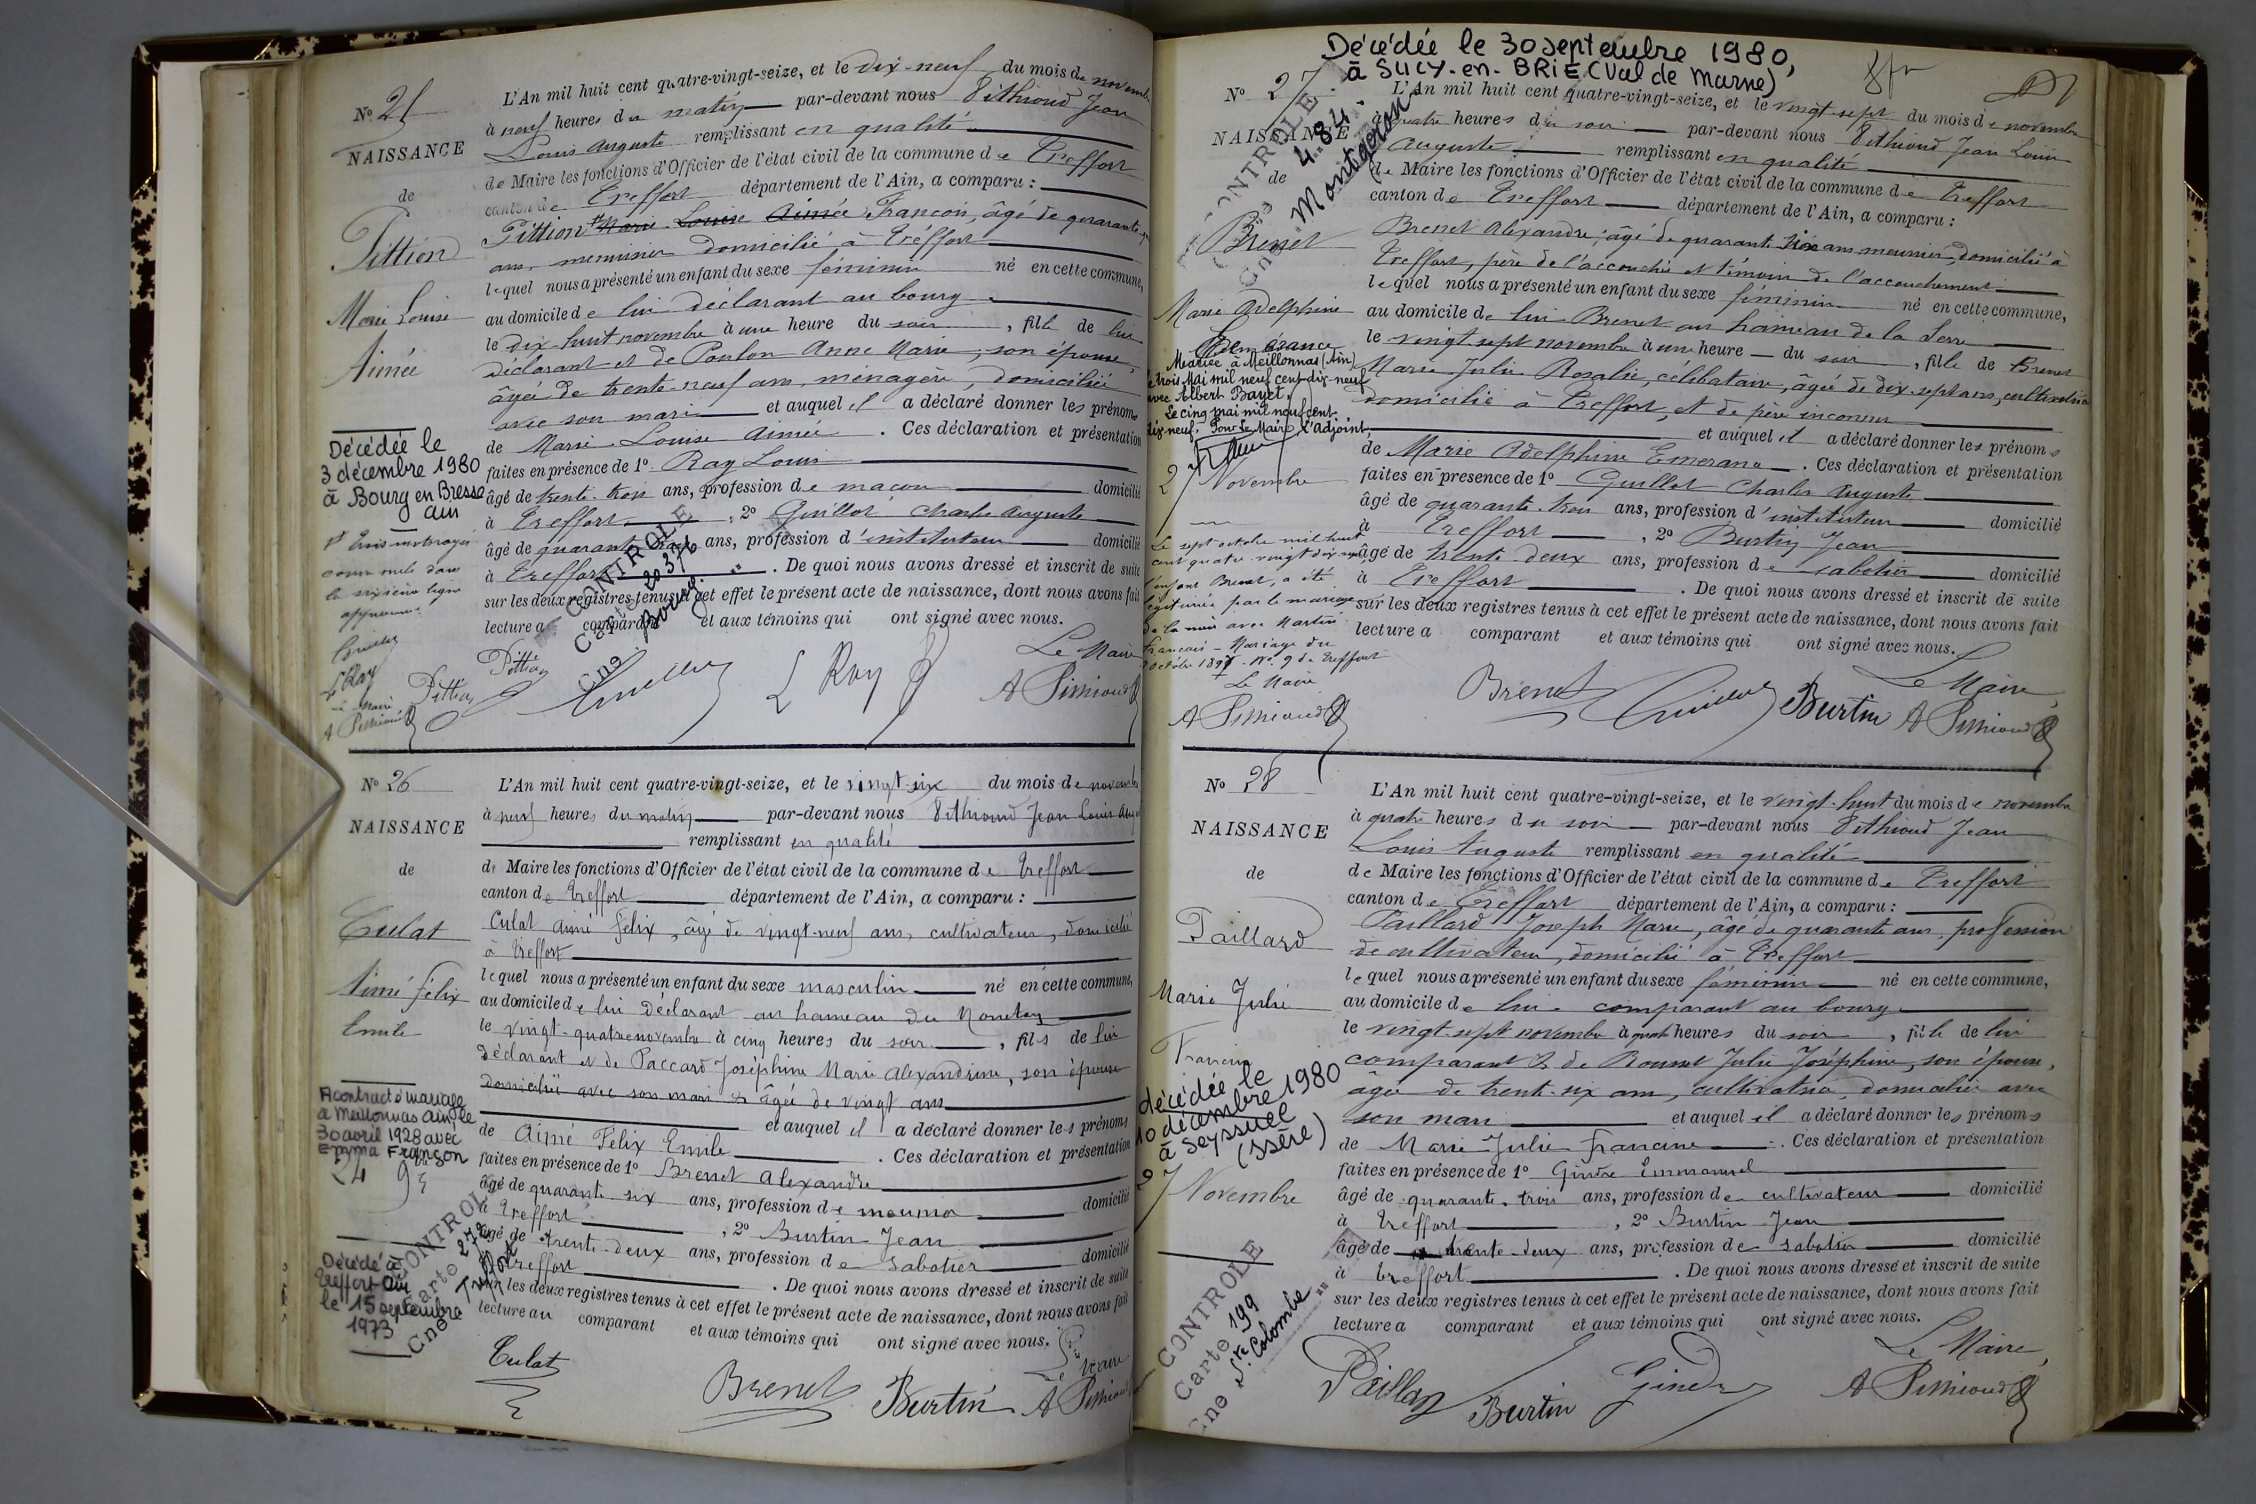 No 25
NAISSANCE
de
Pittion
Marie Louise
Aimée
L'An mil huit cent quatre-vingt-seize, et le dix-neuf du mois de novembre
à neuf heures du matin par-devant nous Pithioud Jean
Louis Auguste remplissant en qualité
de Maire les fonctions d'Officier de l'état civil de la commune de Treffort
canton de Treffort département de l'Ain, a comparu :
Pittion Marie Louise Aimée François, âgé de quarante
ans, menuisier domicilié à Tréffort
lequel nous a présenté un enfant du sexe féminin né en cette commune,
au domicile de lui déclarant au bourg
le dix-huit novembre à une heure du soir, fille de lui
déclarant et de Poulon Anne Marie, son épouse,
âgée de trente-neuf ans, ménagère, domiciliée
avec son mari et auquel il a déclaré donner les prénoms
de Marie Louise Aimée. Ces déclaration et présentation
faites en présence de 1o Ray Louis
âgé de trente-trois ans, profession de maçon domicilié
à Treffort, 2o Guillot Charles Auguste
âgé de quarante trois ans, profession d'instituteur domicilié
à Treffort. De quoi nous avons dressé et inscrit de suite
sur les deux registres tenus à cet effet le présent acte de naissance, dont nous avons fait
lecture au comparant et aux témoins qui ont signé avec nous.
Le Maire
Pittion
L Ray
A Pithioud
Décédée le
3 décembre 1980
à Bourg en Bresse
Ain
trois mots rayés
comme nuls dans
la sixième ligne
approuvés
L Ray
Pittion
Le Maire
A Pithioud
CONTROLE
Carte 20376
Cne Bourg
No 26
NAISSANCE
de
Culat
Aimé Félix
Emile
L'An mil huit cent quatre-vingt-seize, et le vingt-six du mois de novembre
à neuf heures du matin par-devant nous Pithioud Jean Louis Auguste
remplissant en qualité
de Maire les fonctions d'Officier de l'état civil de la commune de Treffort
canton de Treffort département de l'Ain, a comparu :
Culat Aimé Félix, âgé de vingt-neuf ans, cultivateur, domicilié
à Treffort
lequel nous a présenté un enfant du sexe masculin né en cette commune,
au domicile de lui déclarant au hameau du
le vingt-quatre novembre à cinq heures du soir, fils de lui
déclarant et de Paccard Joséphine Marie Alexandrine, son épouse
domiciliée avec son mari & âgée de vingt ans
et auquel il a déclaré donner les prénoms
de Aimé Félix Emile. Ces déclaration et présentation
faites en présence de 1o Brenet Alexandre
âgé de quarante six ans, profession de meunier domicilié
à Treffort, 2o Burtin Jean
âgé de trente-deux ans, profession de sabotier domicilié
à Treffort. De quoi nous avons dressé et inscrit de suite
sur les deux registres tenus à cet effet le présent acte de naissance, dont nous avons fait
lecture au comparant et aux témoins qui ont signé avec nous.
Culat
Brenet
Burtin
Le Maire
A Pithioud
A contracté mariage
à Meillonnas Ain, le
30 avril 1928 avec
Emma Françon
24 9bre
Décédé à
Treffort Ain
le 15 septembre
1973
CONTROLE
Carte 272
Cne Treffort
Décédée le 30 septembre 1980,
à SUCY-en-BRIE (Val de Marne)
No 27
NAISSANCE
de
Brenet
Marie Adelphine
Emérance
CONTROLE
484
Montgeron
L'An mil huit cent quatre-vingt-seize, et le vingt-sept du mois de novembre
à quatre heures du soir par-devant nous Pithioud Jean Louis
Auguste remplissant en qualité
de Maire les fonctions d'Officier de l'état civil de la commune de Treffort
canton de Treffort département de l'Ain, a comparu :
Brenet Alexandre, âgé de quarante six ans meunier, domicilié à
Treffort, père de l'accouchée et témoin de l'accouchement
lequel nous a présenté un enfant du sexe féminin né en cette commune,
au domicile de lui Brenet au hameau de la Serra
le vingt sept novembre à une heure du soir, fille de Brenet
Marie Julie Rosalie, célibataire, âgée de dix-sept ans, cultivatrice
domiciliée à Treffort, et de père inconnu
et auquel il a déclaré donner les prénoms
de Marie Adelphine Emerance. Ces déclaration et présentation
faites en présence de 1o Guillot Charles Auguste
âgé de quarante-trois ans, profession d'instituteur domicilié
à Treffort, 2o Burtin Jean
âgé de trente deux ans, profession de sabotier domicilié
à Treffort. De quoi nous avons dressé et inscrit de suite
sur les deux registres tenus à cet effet le présent acte de naissance, dont nous avons fait
lecture a comparant et aux témoins qui ont signé avec nous.
Le Maire
Brenet
Burtin
A Pithioud
Mariée à Meillonnas (Ain)
le trois Mai mil neuf cent dix-neuf
avec Albert Bayet.
Le cinq mai mil neuf cent
dix-neuf. Pour Le Maire, l'adjoint,
27 Novembre
Le sept octobre mil huit
cent quatre vingt dix sept
l'enfant Brenet, a été
légitimée par le mariage
de la mère avec Martin
François - Mariage du
octobre 1897 - No 9 de Treffort
Le Maire
A Pithioud
No 28
NAISSANCE
de
Paillard
Marie Julie
Francine
L'An mil huit cent quatre-vingt-seize, et le vingt-huit du mois de novembre
à quatre heures du soir par-devant nous Pithioud Jean
Louis Auguste remplissant en qualité
de Maire les fonctions d'Officier de l'état civil de la commune de Treffort
canton de Treffort département de l'Ain, a comparu :
Paillard Joseph Marie, âgé de quarante ans, profession
de cultivateur, domicilié à Treffort
lequel nous a présenté un enfant du sexe féminin né en cette commune,
au domicile de lui comparant au bourg
le vingt-sept novembre à quatre heures du soir, fille de lui
comparant & de Rousset Julie Joséphine, son épouse,
âgée de trente-six ans, cultivatrice, domiciliée avec
son mari et auquel il a déclaré donner les prénoms
de Marie Julie Francine. Ces déclaration et présentation
faites en présence de 1o Gindre Emmanuel
âgé de quarante-trois ans, profession de cultivateur domicilié
à Treffort, 2o Burtin Jean
âgé de trente-deux ans, profession de sabotier domicilié
à Treffort. De quoi nous avons dressé et inscrit de suite
sur les deux registres tenus à cet effet le présent acte de naissance, dont nous avons fait
lecture a comparant et aux témoins qui ont signé avec nous.
Le Maire,
Paillard
Burtin
Gindre
A Pithioud
décédée le
10 décembre 1980
à Seyssuel
(Isère)
27 Novembre
CONTROLE
Carte 199
Cne Ste Colombe